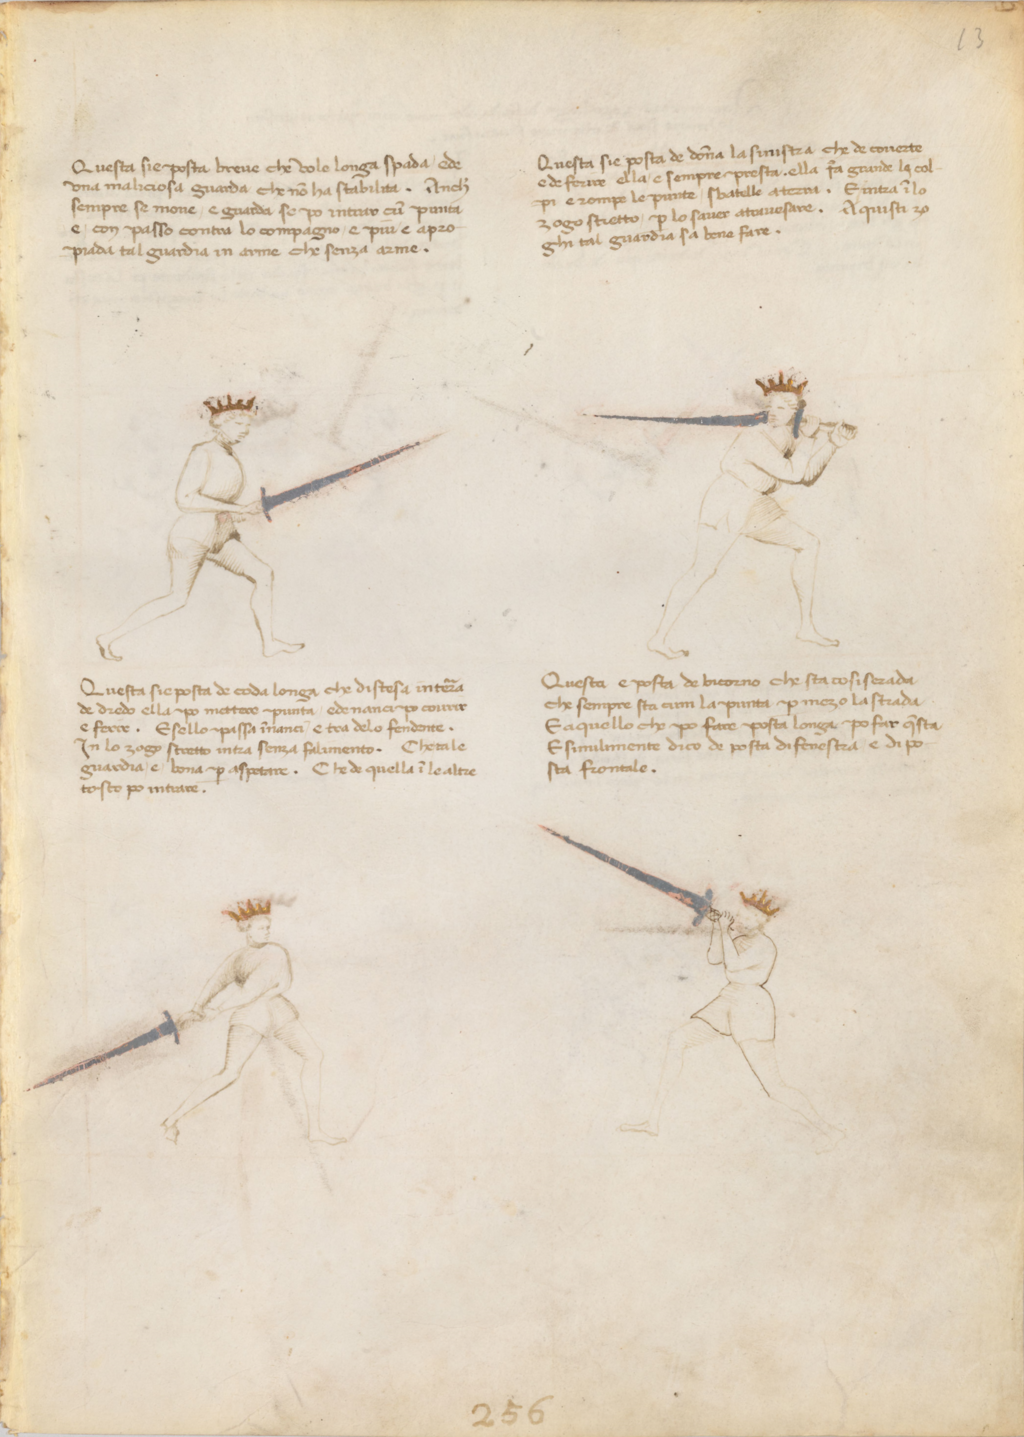 13
Questa sie posta breve che vole longa spada, e de
una maliciosa guarda che nō ha stabilita. Anch
sempre se move, e guarda se po intrar cū punta
e, con passo contra lo compagno, e piu e apro-
piada tal guardia in arme che senza arme.
Questa sie posta de dōna la sinistra che de coverte
e de ferire ella, e sempre presta. ella fa grande li col-
pi e rompe le punte, sbatelle aterra. E intra ī lo
zogo stretto, p lo saver atravesare. A quisti zo
ghi tal guardia sa bene fare.
Questa sie posta de coda longa che distesa in terra
de dredo ella po mettere punta, e denanci po covrir
e ferire. E se llo passa īnanci e tra de lo fendente.
In lo zogo stretto intra senza falimento. Che tale
guardia, e, bona p aspetare. Che de quella ī le altre
tosto po intrare.
Questa e posta de bicorno che sta cosi serada
che sempre sta cum la punta p mezo la strada
E a quello che po fare posta longa po far q̄sta
E similmente dico de posta di fenestra, e di po-
sta frontale.
256